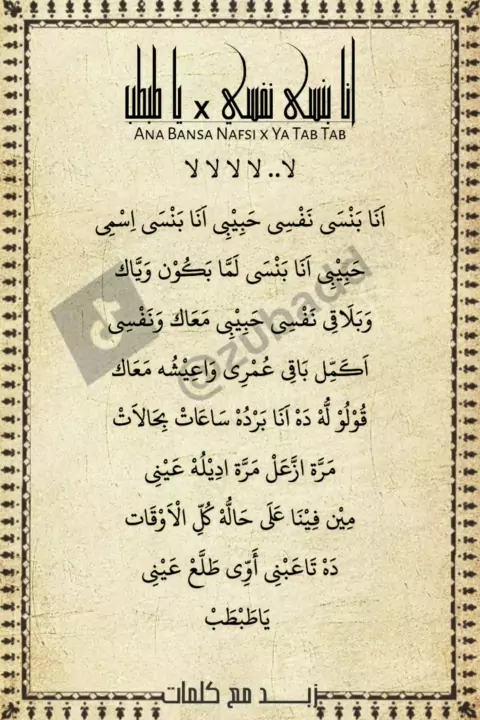 انا بنسى نفسي x يا طبطب
ANA BANSA NAFSI X YA TAB TAB
لا.. لا لا لا لا
اَنَا بَنْسَى نَفْسِى حَبِيْبِى اَنَا بَنْسَى اِسْمِى
حَبِيْبِى اَنَا بَنْسَى لَمَّا بَكُوْن وَيَّاك
وَبَلَاقِى نَفْسِى حَبِيْبِى مَعَاك وَنَفْسِى
اَكَمِّل بَاقِى عُمْرِى وَاعِيْشُه مَعَاك
قُوْلُوْ لُّهْ دَهْ اَنَا بَرْدُهْ سَاعَاتْ بِحَالَاتْ
مَرَّة ازَّعَلْ مَرَّة ادِيْلُهْ عَيْنِى
مِيْن فِيْنَا عَلَى حَالُهْ كُلِّ الْاَوْقَات
دَهْ تَاعَبْنِى أَوِّى طَلَّعْ عَيْنِى
يَاطَبْطَبْ
زيد مع كلمات
@zubadd